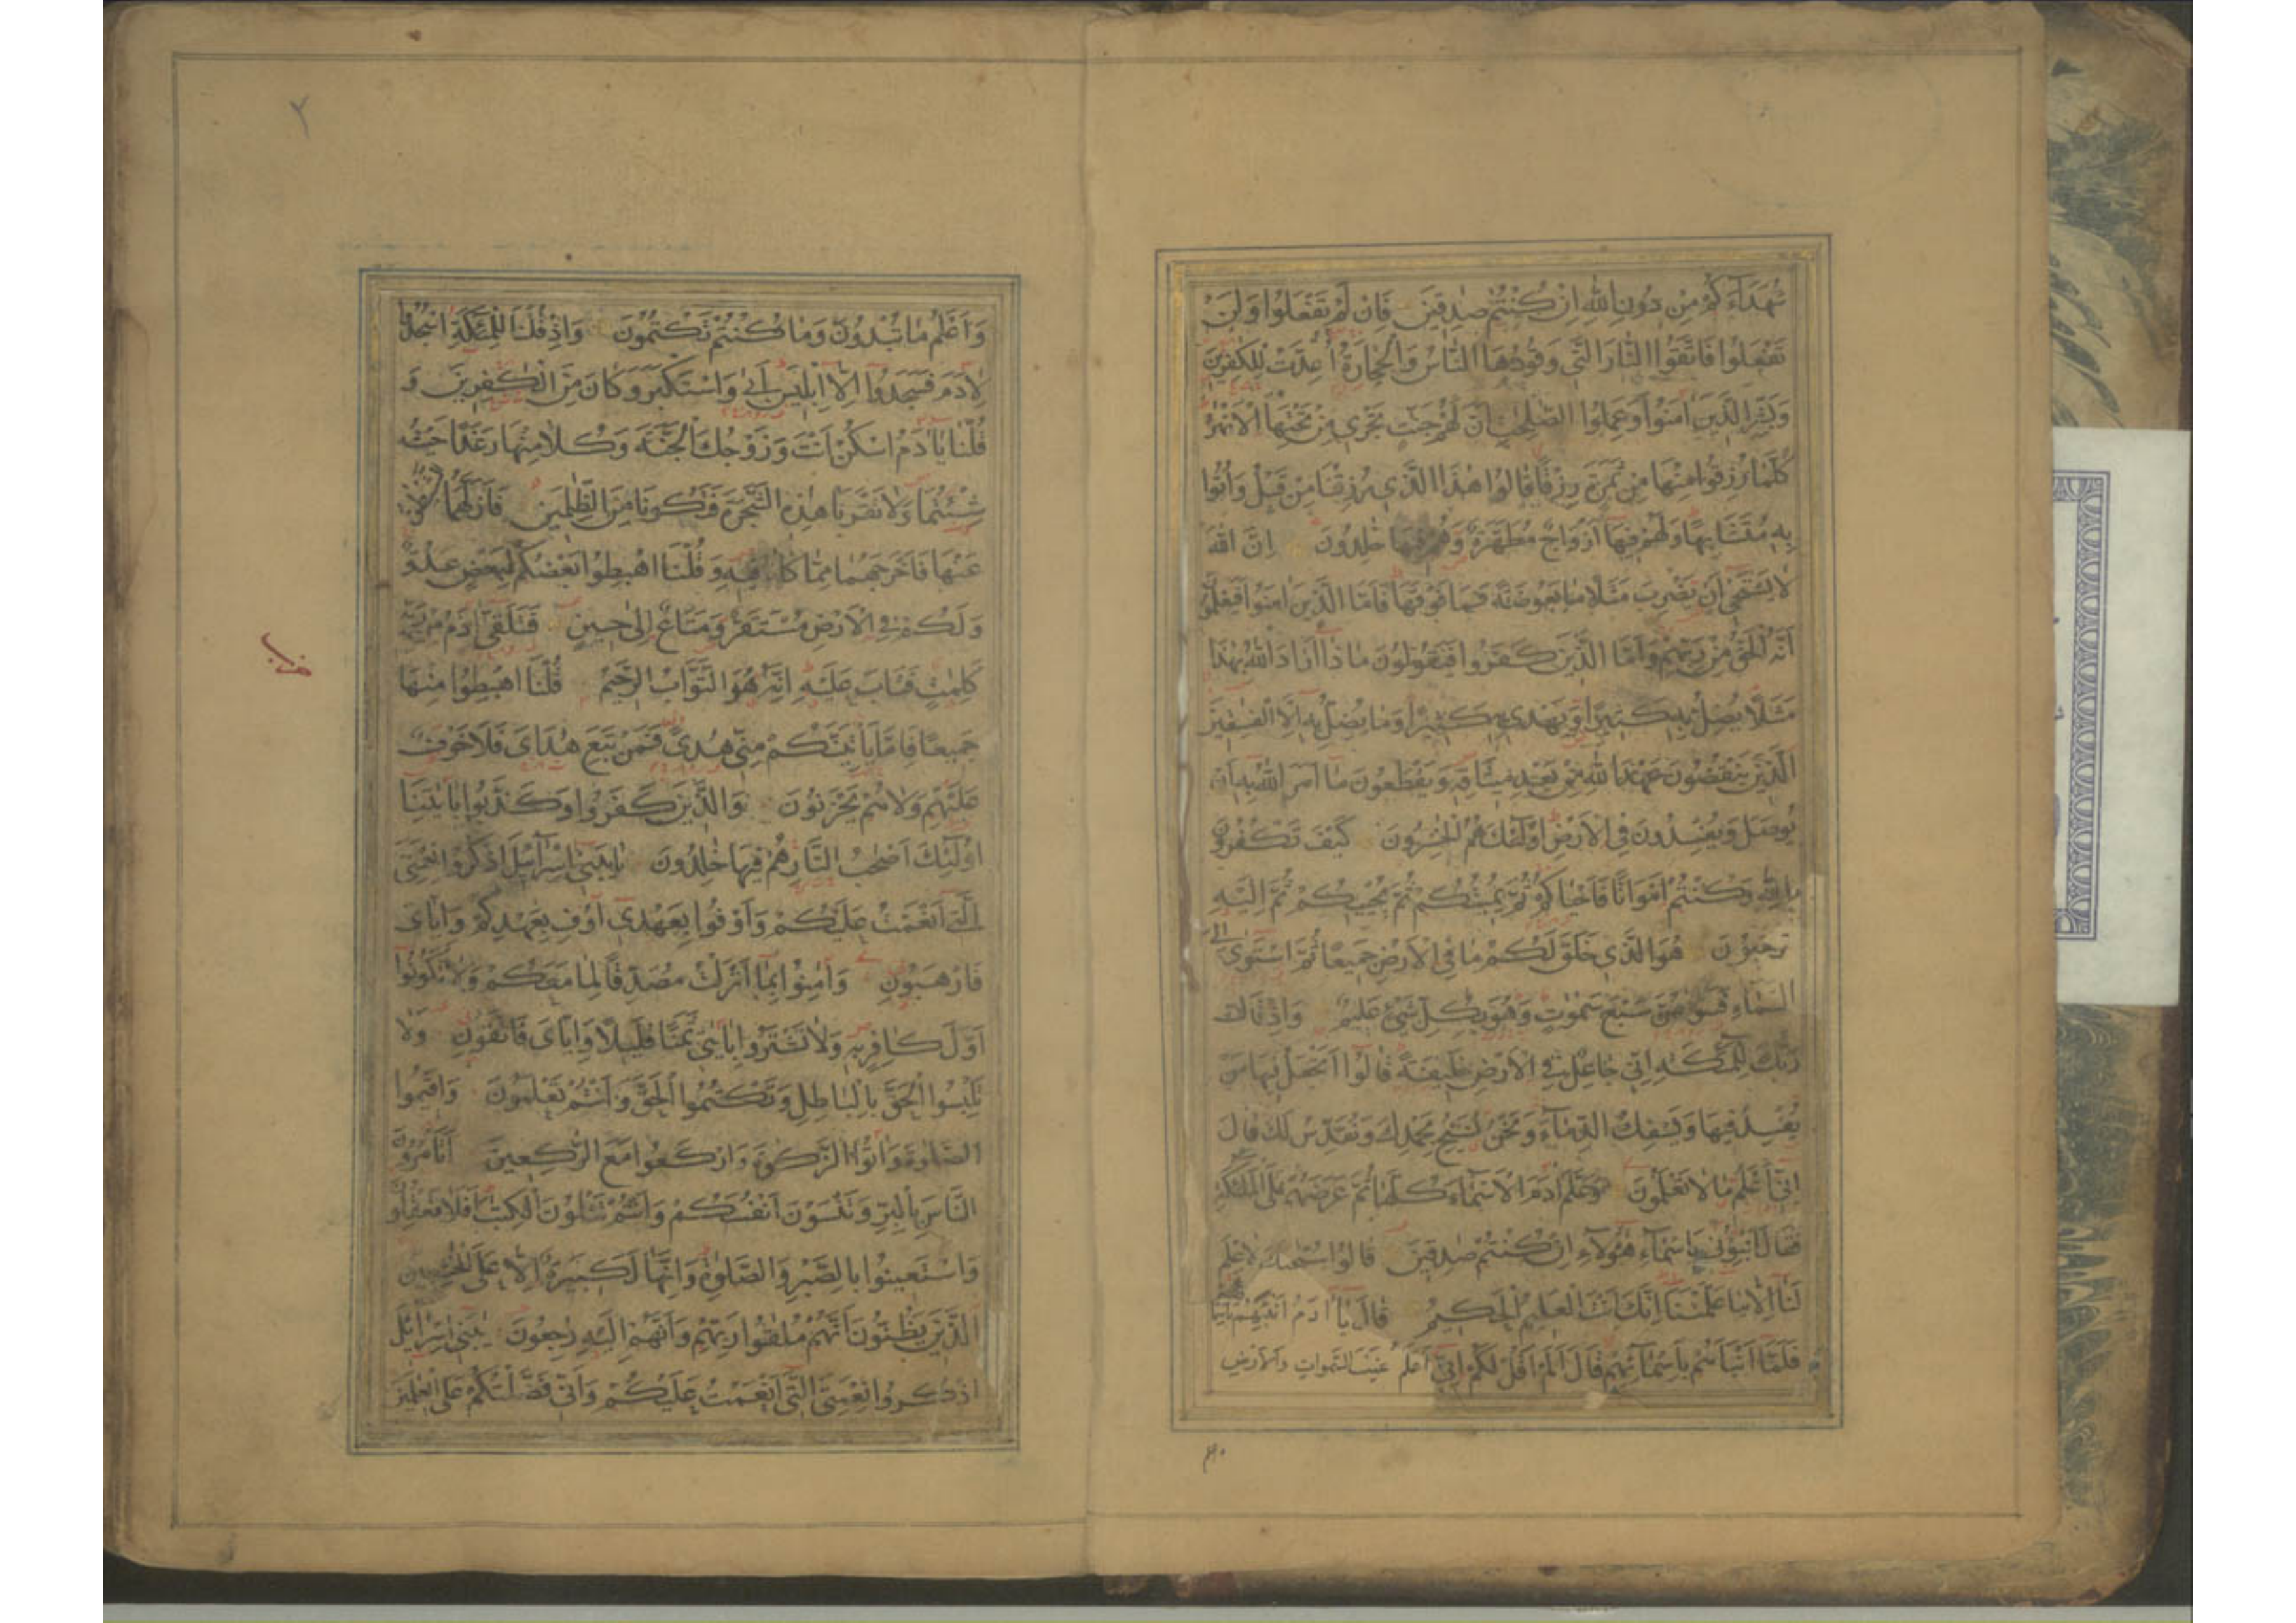 شُهَدَآءَكُمْ مِنْ دُونِ اللّٰهِ اِنْ كُنْتُمْ صٰدِقِينَ فَاِنْ لَمْ تَفْعَلُوا وَلَنْ
تَفْعَلُوا فَاتَّقُوا النَّارَ الَّتِي وَقُودُهَا النَّاسُ وَالْحِجَارَةُ اُعِدَّتْ لِلْكٰفِرِينَ
وَبَشِّرِ الَّذِينَ اٰمَنُوا وَعَمِلُوا الصّٰلِحٰتِ اَنَّ لَهُمْ جَنّٰتٍ تَجْرِي مِنْ تَحْتِهَا الْاَنْهٰرُ
كُلَّمَا رُزِقُوا مِنْهَا مِنْ ثَمَرَةٍ رِزْقًا قَالُوا هٰذَا الَّذِي رُزِقْنَا مِنْ قَبْلُ وَاُتُوا
بِهِ مُتَشَابِهًا وَلَهُمْ فِيهَا اَزْوَاجٌ مُطَهَّرَةٌ وَهُمْ فِيهَا خٰلِدُونَ اِنَّ اللّٰهَ
لَا يَسْتَحْيِ اَنْ يَضْرِبَ مَثَلًا مَا بَعُوضَةً فَمَا فَوْقَهَا فَاَمَّا الَّذِينَ اٰمَنُوا فَيَعْلَمُونَ
اَنَّهُ الْحَقُّ مِنْ رَبِّهِمْ وَاَمَّا الَّذِينَ كَفَرُوا فَيَقُولُونَ مَاذَا اَرَادَ اللّٰهُ بِهٰذَا
مَثَلًا يُضِلُّ بِهِ كَثِيرًا وَيَهْدِي بِهِ كَثِيرًا وَمَا يُضِلُّ بِهِ اِلَّا الْفٰسِقِينَ
الَّذِينَ يَنْقُضُونَ عَهْدَ اللّٰهِ مِنْ بَعْدِ مِيثَاقِهِ وَيَقْطَعُونَ مَا اَمَرَ اللّٰهُ بِهِ اَنْ
يُوصَلَ وَيُفْسِدُونَ فِي الْاَرْضِ اُولٰئِكَ هُمُ الْخٰسِرُونَ كَيْفَ تَكْفُرُونَ
بِاللّٰهِ وَكُنْتُمْ اَمْوَاتًا فَاَحْيَاكُمْ ثُمَّ يُمِيتُكُمْ ثُمَّ يُحْيِيكُمْ ثُمَّ اِلَيْهِ
تُرْجَعُونَ هُوَ الَّذِي خَلَقَ لَكُمْ مَا فِي الْاَرْضِ جَمِيعًا ثُمَّ اسْتَوٰى اِلَى
السَّمَاءِ فَسَوّٰهُنَّ سَبْعَ سَمٰوٰتٍ وَهُوَ بِكُلِّ شَيْءٍ عَلِيمٌ وَاِذْ قَالَ
رَبُّكَ لِلْمَلٰئِكَةِ اِنِّي جَاعِلٌ فِي الْاَرْضِ خَلِيفَةً قَالُوا اَتَجْعَلُ فِيهَا مَنْ
يُفْسِدُ فِيهَا وَيَسْفِكُ الدِّمَآءَ وَنَحْنُ نُسَبِّحُ بِحَمْدِكَ وَنُقَدِّسُ لَكَ قَالَ
اِنِّي اَعْلَمُ مَا لَا تَعْلَمُونَ وَعَلَّمَ اٰدَمَ الْاَسْمَآءَ كُلَّهَا ثُمَّ عَرَضَهُمْ عَلَى الْمَلٰئِكَةِ
فَقَالَ اَنْبِئُونِي بِاَسْمَآءِ هٰؤُلَآءِ اِنْ كُنْتُمْ صٰدِقِينَ قَالُوا سُبْحٰنَكَ لَا عِلْمَ
لَنَا اِلَّا مَا عَلَّمْتَنَا اِنَّكَ اَنْتَ الْعَلِيمُ الْحَكِيمُ قَالَ يَا اٰدَمُ اَنْبِئْهُمْ بِاَسْمَائِهِمْ
فَلَمَّا اَنْبَاَهُمْ بِاَسْمَآئِهِمْ قَالَ اَلَمْ اَقُلْ لَكُمْ اِنِّي اَعْلَمُ غَيْبَ السَّمٰوَاتِ وَالْاَرْضِ
٢
وَاَعْلَمُ مَا تُبْدُونَ وَمَا كُنْتُمْ تَكْتُمُونَ وَاِذْ قُلْنَا لِلْمَلٰئِكَةِ اسْجُدُوا
لِاٰدَمَ فَسَجَدُوا اِلَّا اِبْلِيسَ اَبٰى وَاسْتَكْبَرَ وَكَانَ مِنَ الْكٰفِرِينَ وَ
قُلْنَا يَا اٰدَمُ اسْكُنْ اَنْتَ وَزَوْجُكَ الْجَنَّةَ وَكُلَا مِنْهَا رَغَدًا حَيْثُ
شِئْتُمَا وَلَا تَقْرَبَا هٰذِهِ الشَّجَرَةَ فَتَكُونَا مِنَ الظّٰلِمِينَ فَاَزَلَّهُمَا الشَّيْطٰنُ
عَنْهَا فَاَخْرَجَهُمَا مِمَّا كَانَا فِيهِ وَقُلْنَا اهْبِطُوا بَعْضُكُمْ لِبَعْضٍ عَدُوٌّ
وَلَكُمْ فِي الْاَرْضِ مُسْتَقَرٌّ وَمَتَاعٌ اِلٰى حِينٍ فَتَلَقّٰى اٰدَمُ مِنْ رَبِّهِ
كَلِمٰتٍ فَتَابَ عَلَيْهِ اِنَّهُ هُوَ التَّوَّابُ الرَّحِيمُ قُلْنَا اهْبِطُوا مِنْهَا
جَمِيعًا فَاِمَّا يَاْتِيَنَّكُمْ مِنِّي هُدًى فَمَنْ تَبِعَ هُدَايَ فَلَا خَوْفٌ
عَلَيْهِمْ وَلَا هُمْ يَحْزَنُونَ وَالَّذِينَ كَفَرُوا وَكَذَّبُوا بِاٰيٰتِنَا
اُولٰئِكَ اَصْحٰبُ النَّارِ هُمْ فِيهَا خٰلِدُونَ يَا بَنِي اِسْرَآئِيلَ اذْكُرُوا نِعْمَتِيَ
الَّتِي اَنْعَمْتُ عَلَيْكُمْ وَاَوْفُوا بِعَهْدِي اُوفِ بِعَهْدِكُمْ وَاِيَّايَ
فَارْهَبُونِ وَاٰمِنُوا بِمَا اَنْزَلْتُ مُصَدِّقًا لِمَا مَعَكُمْ وَلَا تَكُونُوا
اَوَّلَ كَافِرٍ بِهِ وَلَا تَشْتَرُوا بِاٰيٰتِي ثَمَنًا قَلِيلًا وَاِيَّايَ فَاتَّقُونِ وَلَا
تَلْبِسُوا الْحَقَّ بِالْبَاطِلِ وَتَكْتُمُوا الْحَقَّ وَاَنْتُمْ تَعْلَمُونَ وَاَقِيمُوا
الصَّلٰوةَ وَاٰتُوا الزَّكٰوةَ وَارْكَعُوا مَعَ الرّٰكِعِينَ اَتَاْمُرُونَ
النَّاسَ بِالْبِرِّ وَتَنْسَوْنَ اَنْفُسَكُمْ وَاَنْتُمْ تَتْلُونَ الْكِتٰبَ اَفَلَا تَعْقِلُونَ
وَاسْتَعِينُوا بِالصَّبْرِ وَالصَّلٰوةِ وَاِنَّهَا لَكَبِيرَةٌ اِلَّا عَلَى الْخٰشِعِينَ
الَّذِينَ يَظُنُّونَ اَنَّهُمْ مُلٰقُوا رَبِّهِمْ وَاَنَّهُمْ اِلَيْهِ رٰجِعُونَ يٰبَنِي اِسْرَآئِيلَ
اذْكُرُوا نِعْمَتِيَ الَّتِي اَنْعَمْتُ عَلَيْكُمْ وَاَنِّي فَضَّلْتُكُمْ عَلَى الْعٰلَمِينَ